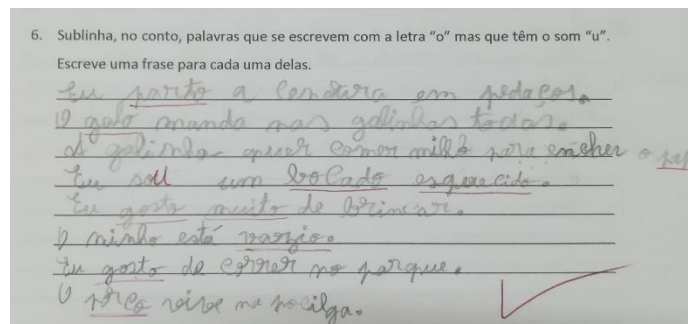 6. Sublinha, no conto, palavras que se escrevem com a letra "o" mas que têm o som "u".
Escreve uma frase para cada uma delas.
Eu parto a cenoura em pedaços.
O galo manda nas galinhas todas.
A galinha quer comer milho para encher o pap
Eu sou um bocado esquecido.
Eu gosto muito de brincar.
O ninho está vazio.
Eu gosto de correr no parque.
O porco vive na pocilga.